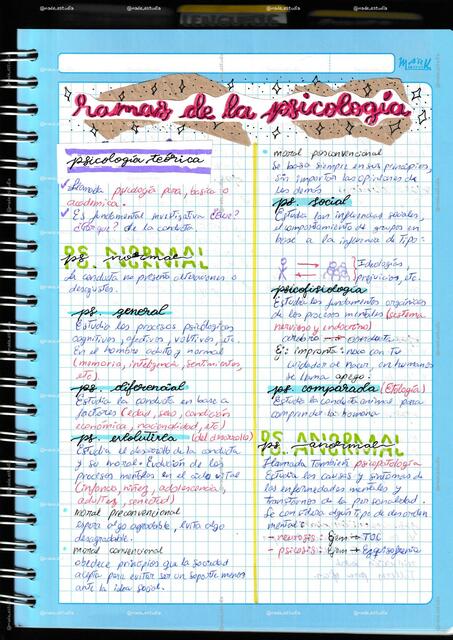 MARK
ramas de la psicología
psicología teórica
Llamada psicología pura, básica o
académica.
Es fundamental, investigativa ¿Que?
¿Por que? de la conducta.
PS. NORMAL
ps. normal
La conducta no presenta alteraciones o
desgustes.
ps. general
Estudia los procesos psicologicos
cognitivos, afectivos, volitivos, etc
En el hombre adulto y normal
(memoria, inteligencia, sentimientos,
etc)
ps. diferencial
Estudia la conducta en base a
factores (edad, sexo, condición
económica, nacionalidad, etc)
ps. evolutiva (del desarrollo)
Estudia el desarrollo de la conducta
y su moral. Evolución de los
procesos mentales en el ciclo vital
(infancia, niñez, adolescencia,
adultez, senectud)
moral preconvencional
espera algo agradable, evita algo
desagradable.
moral convencional
obedece principios que la sociedad
acepta para evitar ser un soporte menos
ante la idea social.
moral posconvencional
Se basa siempre en sus principios,
sin importar las opiniones de
los demás
ps. social
Estudia las influencias sociales,
el comportamiento de grupos en
base a la influencia de tipo:
Ideologías
prejuicios, etc.
psicofisiología
Estudia los fundamentos orgánicos
de los procesos mentales (sistema
nervioso y endocrino)
cerebro → conducta
Ej: impronta: nace con tu
cuidador al nacer, en humanos
se llama apego.
ps. comparada (Etología)
Estudia la conducta animal para
comprender la humana
PS. ANORMAL
ps. anormal
Llamada también psicopatología
Estudia las causas y síntomas de
las enfermedades mentales y
trastornos de la personalidad.
Se con otros algún tipo de desorden
mental:
- neurosis: Ejem → TOC
- psicosis: Ejem → Esquizofrenia
@nade_estudia